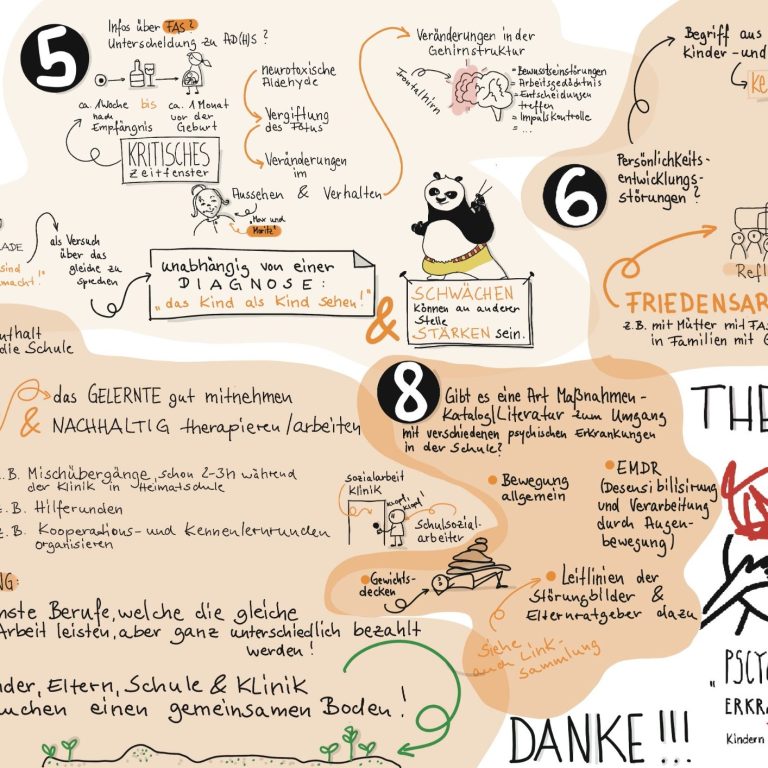 5
Infos über FAS?
Unterscheidung zu AD(H)S?
ca. 1 Woche
nach
Empfängnis
bis
ca. 1 Monat
vor der
Geburt
KRITISCHES
Zeitfenster
neurotoxische
Aldehyde
Vergiftung
des Fötus
Veränderungen
im
Aussehen & Verhalten
"Max und
Moritz"
Veränderungen in der
Gehirnstruktur
frontalhirn
= Bewusstseinstörungen
= Arbeitsgedächtnis
= Entscheidungen
treffen
= Impulskontrolle
= ...
6
Begriff aus
Kinder- und
Persönlichkeits-
entwicklungs-
störungen?
Refl
FRIEDENSAR
z.B. mit Mütter mit FAS
in Familien mit G
LADE
sind
macht!"
als Versuch
über das
gleiche zu
sprechen
unabhängig von einer
DIAGNOSE:
"das Kind als Kind sehen!"
&
SCHWÄCHEN
können an anderer
Stelle
STÄRKEN sein.
nthalt
die Schule
das GELERNTE gut mitnehmen
& NACHHALTIG therapieren/arbeiten
z.B. Mischübergänge, schon 2-3h während
der Klinik in Heimatschule
z.B. Hilferunden
z.B. Kooperations- und Kennenlernrunden
organisieren
sozialarbeit
Klinik
Klopf,
Klopf!
Schulsozial-
arbeiter
8
Gibt es eine Art Maßnahmen-
Katalog/Literatur zum Umgang
mit verschiedenen psychischen Erkrankungen
in der Schule?
Bewegung
allgemein
EMDR
(Desensibilisierung
und Verarbeitung
durch Augen-
bewegung)
Gewichts-
decken
Leitlinien der
Störungbilder &
Elternratgeber dazu
siehe
auch Link-
sammlung
NG:
nste Berufe, welche die gleiche
Arbeit leisten, aber ganz unterschiedlich bezahlt
werden!
nder, Eltern, Schule & Klinik
uchen einen gemeinsamen Boden!
DANKE!!!
THE
"PSCY
ERKRA
Kindern